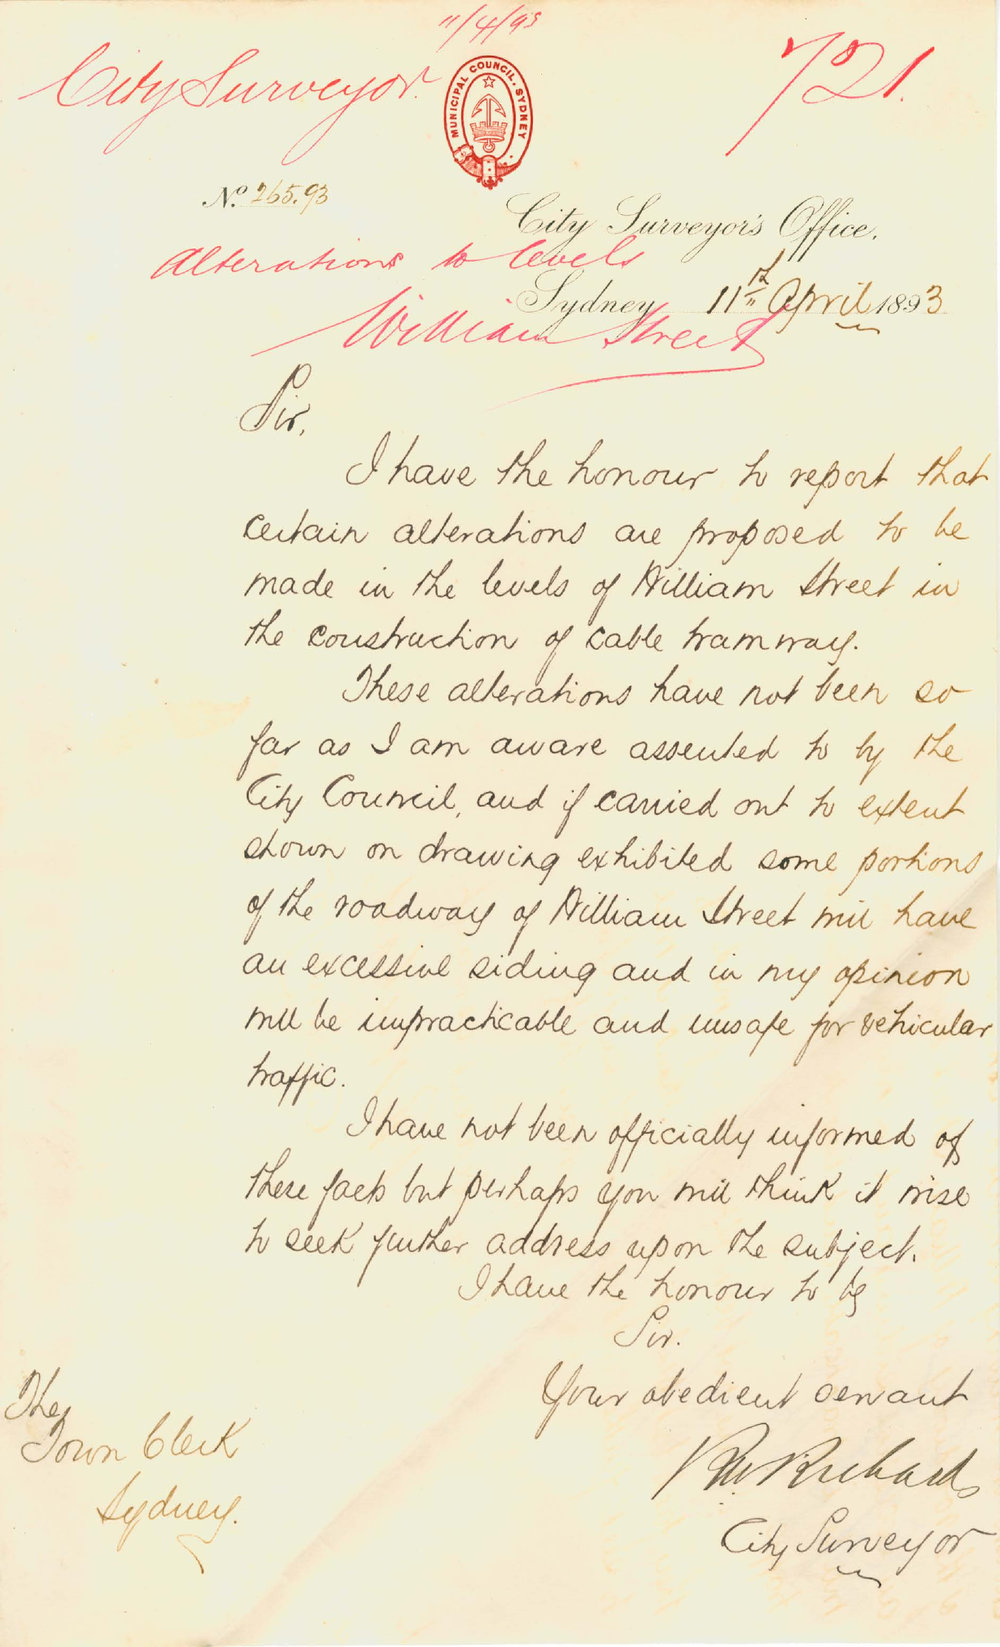 11/4/93
City Surveyor.
721.
MUNICIPAL COUNCIL. SYDNEY
No. 265.93
City Surveyor's Office.
Alterations to levels
Sydney 11th April 1893
William Street
Sir,
I have the honour to report that
certain alterations are proposed to be
made in the levels of William Street in
the construction of cable tramway.
These alterations have not been so
far as I am aware assented to by the
City Council, and if carried out to extent
shown on drawing exhibited some portions
of the roadway of William Street will have
an excessive siding and in my opinion
will be impracticable and unsafe for vehicular
traffic.
I have not been officially informed of
these facts but perhaps you will think it wise
to seek further address upon the subject.
I have the honour to be
Sir.
Your obedient servant
RW Richards
City Surveyor
The
Town Clerk
Sydney.